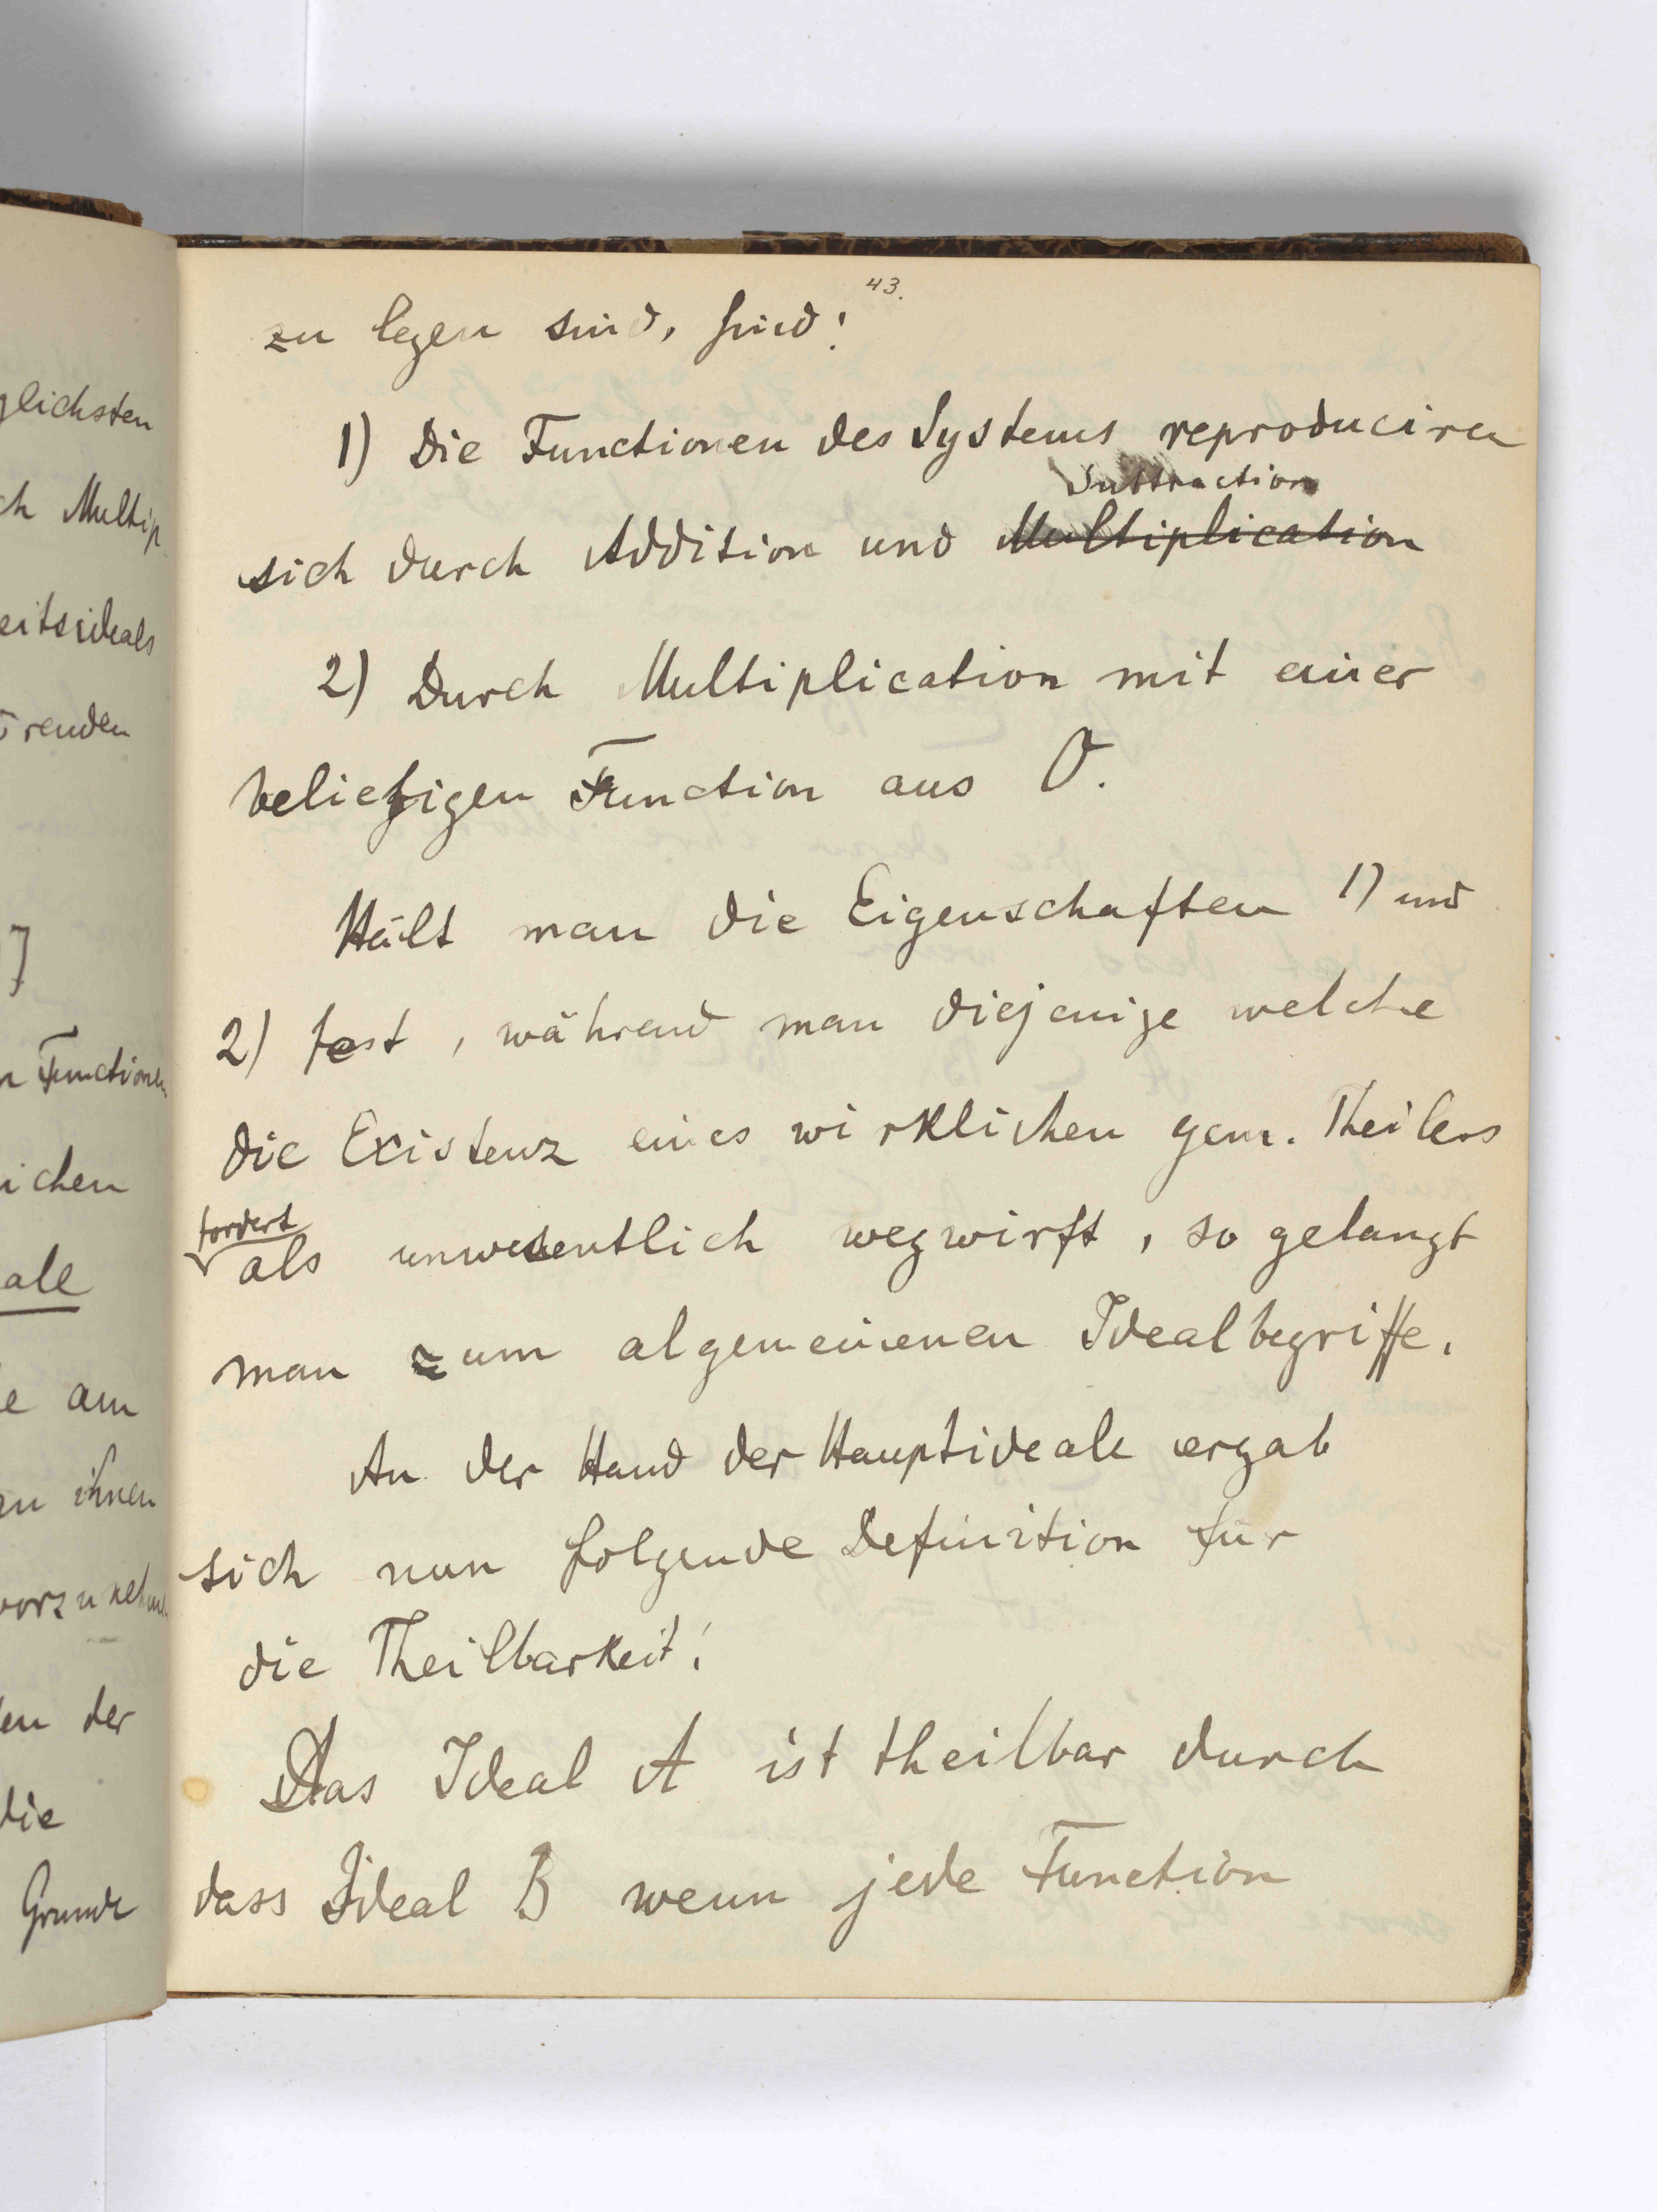 glichsten
ch Multip
eitsideals
renden
n Functionen
ichen
ale
e am
zu ihnen
vorzunehm
en der
die
Grunde
43.
zu legen sind, sind:
1) Die Functionen des Systems reproduciren
Subtraction
sich durch Addition und Multiplication
2) Durch Multiplication mit einer
beliebigen Function aus O.
Hält man die Eigenschaften 1) und
2) fest, während man diejenige welche
die Existenz eines wirklichen gem. Theilers
fordert
als unwesentlich wegwirft, so gelangt
man zum algemeinenen Idealbegriffe.
An der Hand der Hauptideale ergab
sich nun folgende Definition für
die Theilbarkeit:
Das Ideal A ist theilbar durch
dass Ideal B wenn jede Function